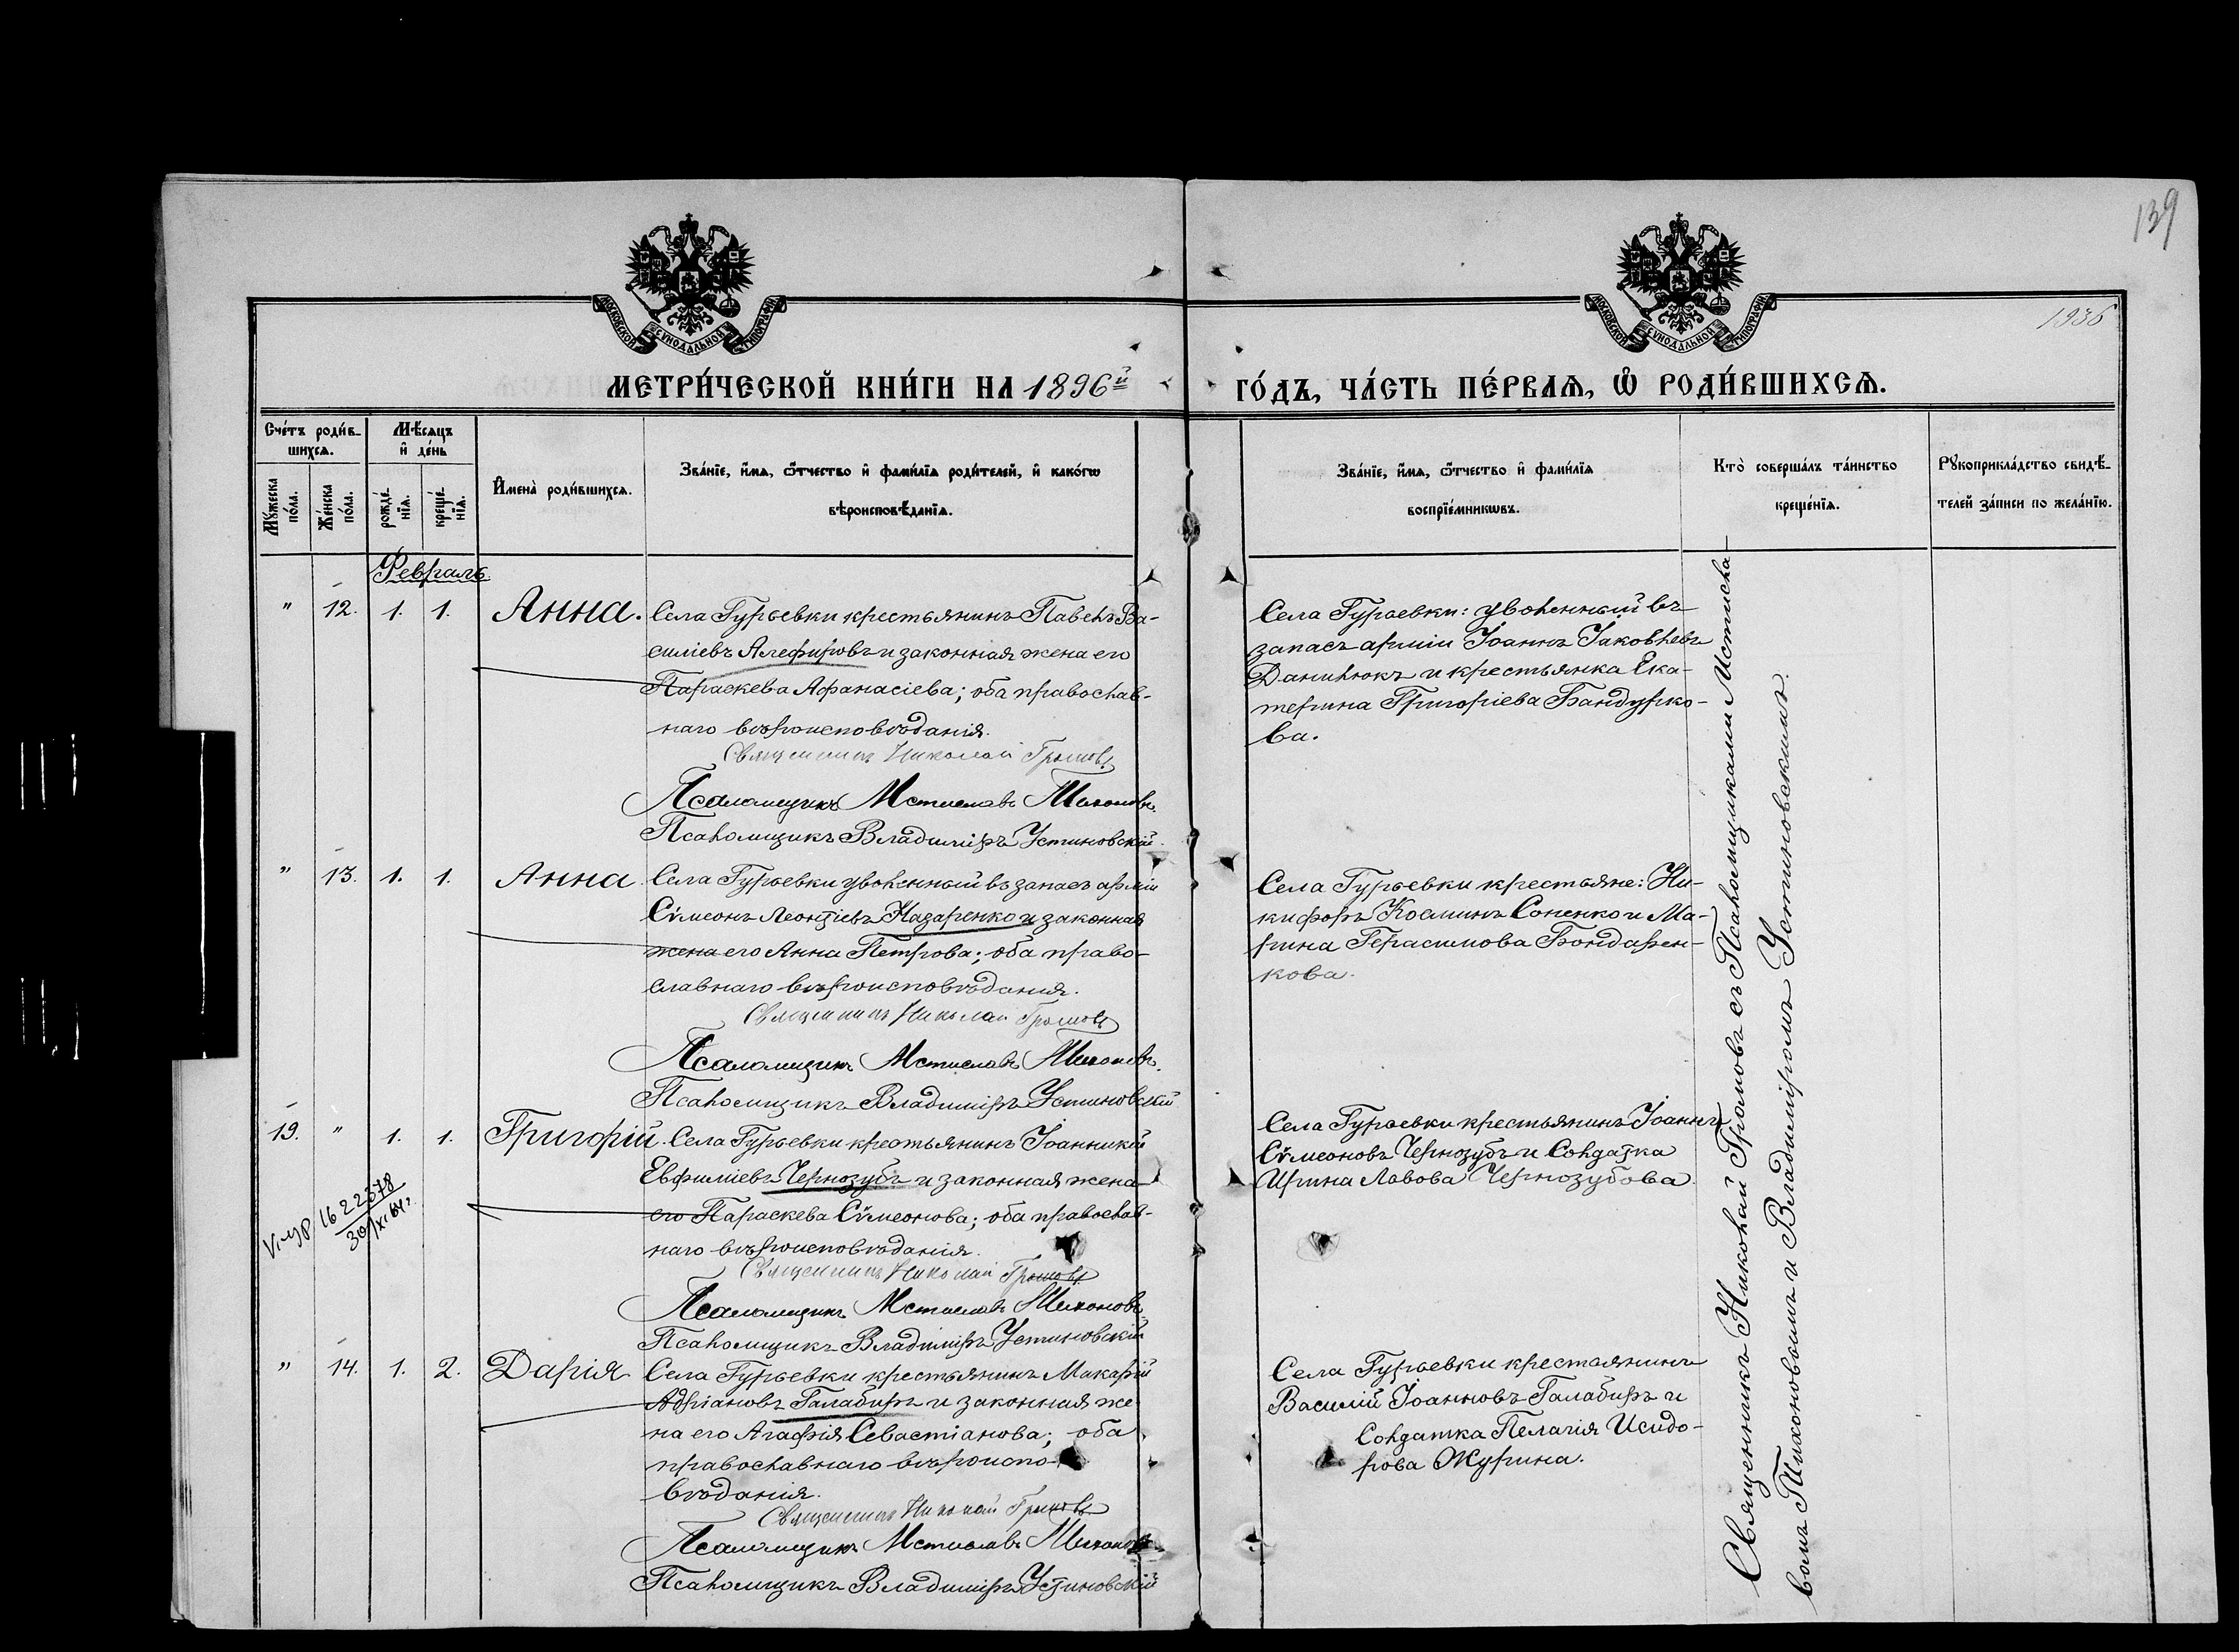 139
1936
МОСКОВСКОЙ СѴНОДАЛЬНОЙ ТИПОГРАФІИ
МОСКОВСКОЙ СѴНОДАЛЬНОЙ ТИПОГРАФІИ
МЕТРИ́ЧЕСКОЙ КНИ́ГИ НА 1896й ГО́ДЪ, ЧА́СТЬ ПЕ́РВАѦ, Ѿ РОДИ́ВШИХСѦ.
Сче́тъ роди́в-
шихсѧ.
Мꙋ́жеска по́ла.
Же́нска по́ла.
Мѣ́сѧцъ и҆ де́нь
рожде́-
нїѧ.
креще́-
нїѧ.
И҆мена̀ роди́вшихсѧ.
Зва́нїе, и҆́мѧ, ѻ҆́тчество и҆ фами́лїѧ роди́телей, и҆ како́гѡ
вѣроисповѣ́данїѧ.
Зва́нїе, и҆́мѧ, ѻ҆́тчество и҆ фами́лїѧ
воспрїе́мникѡвъ.
Кто̀ соверша́лъ та́инство
креще́нїѧ.
Рꙋкоприкла́дство свидѣ́-
телей за́писи по жела́нїю.
Февраль
" 12. 1. 1. Анна. Села Гурьевки крестьянинъ Павелъ Ва-
силіевъ Алефировъ и законная жена его
Параскева Афанасіева; оба православ-
наго вѣроисповѣданія.
Священникъ Николай Громовъ
Псаломщикъ Мстиславъ Тихоновъ.
Псаломщикъ Владиміръ Устиновскій.
Села Гурьевки: уволенный въ
запасъ арміи Іоаннъ Іаковлевъ
Данилюкъ и крестьянка Ека-
терина Григоріева Бандурко-
ва.
" 13. 1. 1. Анна Села Гурьевки уволенный въ запасъ арміи
Сѵмеонъ Леонтіевъ Назаренко и законная
жена его Анна Петрова; оба право-
славнаго вѣроисповѣдания.
Священникъ Николай Громовъ
Псаломщикъ Мстиславъ Тихоновъ.
Псаломщикъ Владиміръ Устиновскій
Села Гурьевки крестьяне: Ни-
кифоръ Косминъ Соненко и Ма-
рина Герасимова Бондарен-
кова.
19. " 1. 1. Григорій. Села Гурьевки крестьянинъ Іоанникій
Евфиміевъ Чернозубъ и законная жена
его Параскева Сѵмеонова; оба православ-
наго вѣроисповѣданія.
Священникъ Николай Громовъ
Псаломщикъ Мстиславъ Тихоновъ
Псаломщикъ Владиміръ Устиновскій
Села Гурьевки крестьянинъ Іоаннъ
Сѵмеоновъ Чернозубъ и Солдатка
Ирина Лавова Чернозубова.
" 14. 1. 2. Дарія Села Гурьевки крестьянинъ Макарій
Адріановъ Галабиръ и законная же-
на его Агафія Севастіанова; оба
православнаго вѣроиспо-
вѣданія.
Священникъ Николай Громовъ
Псаломщикъ Мстиславъ Тихоновъ
Псаломщикъ Владиміръ Устиновскій
Села Гурьевки крестьянинъ
Василій Іоанновъ Галабиръ и
Солдатка Пелагія Исидо-
рова Журина.
Священникъ Николай Громовъ съ Псаломщиками Мстисла-
вомъ Тихоновымъ и Владиміромъ Устиновскимъ.